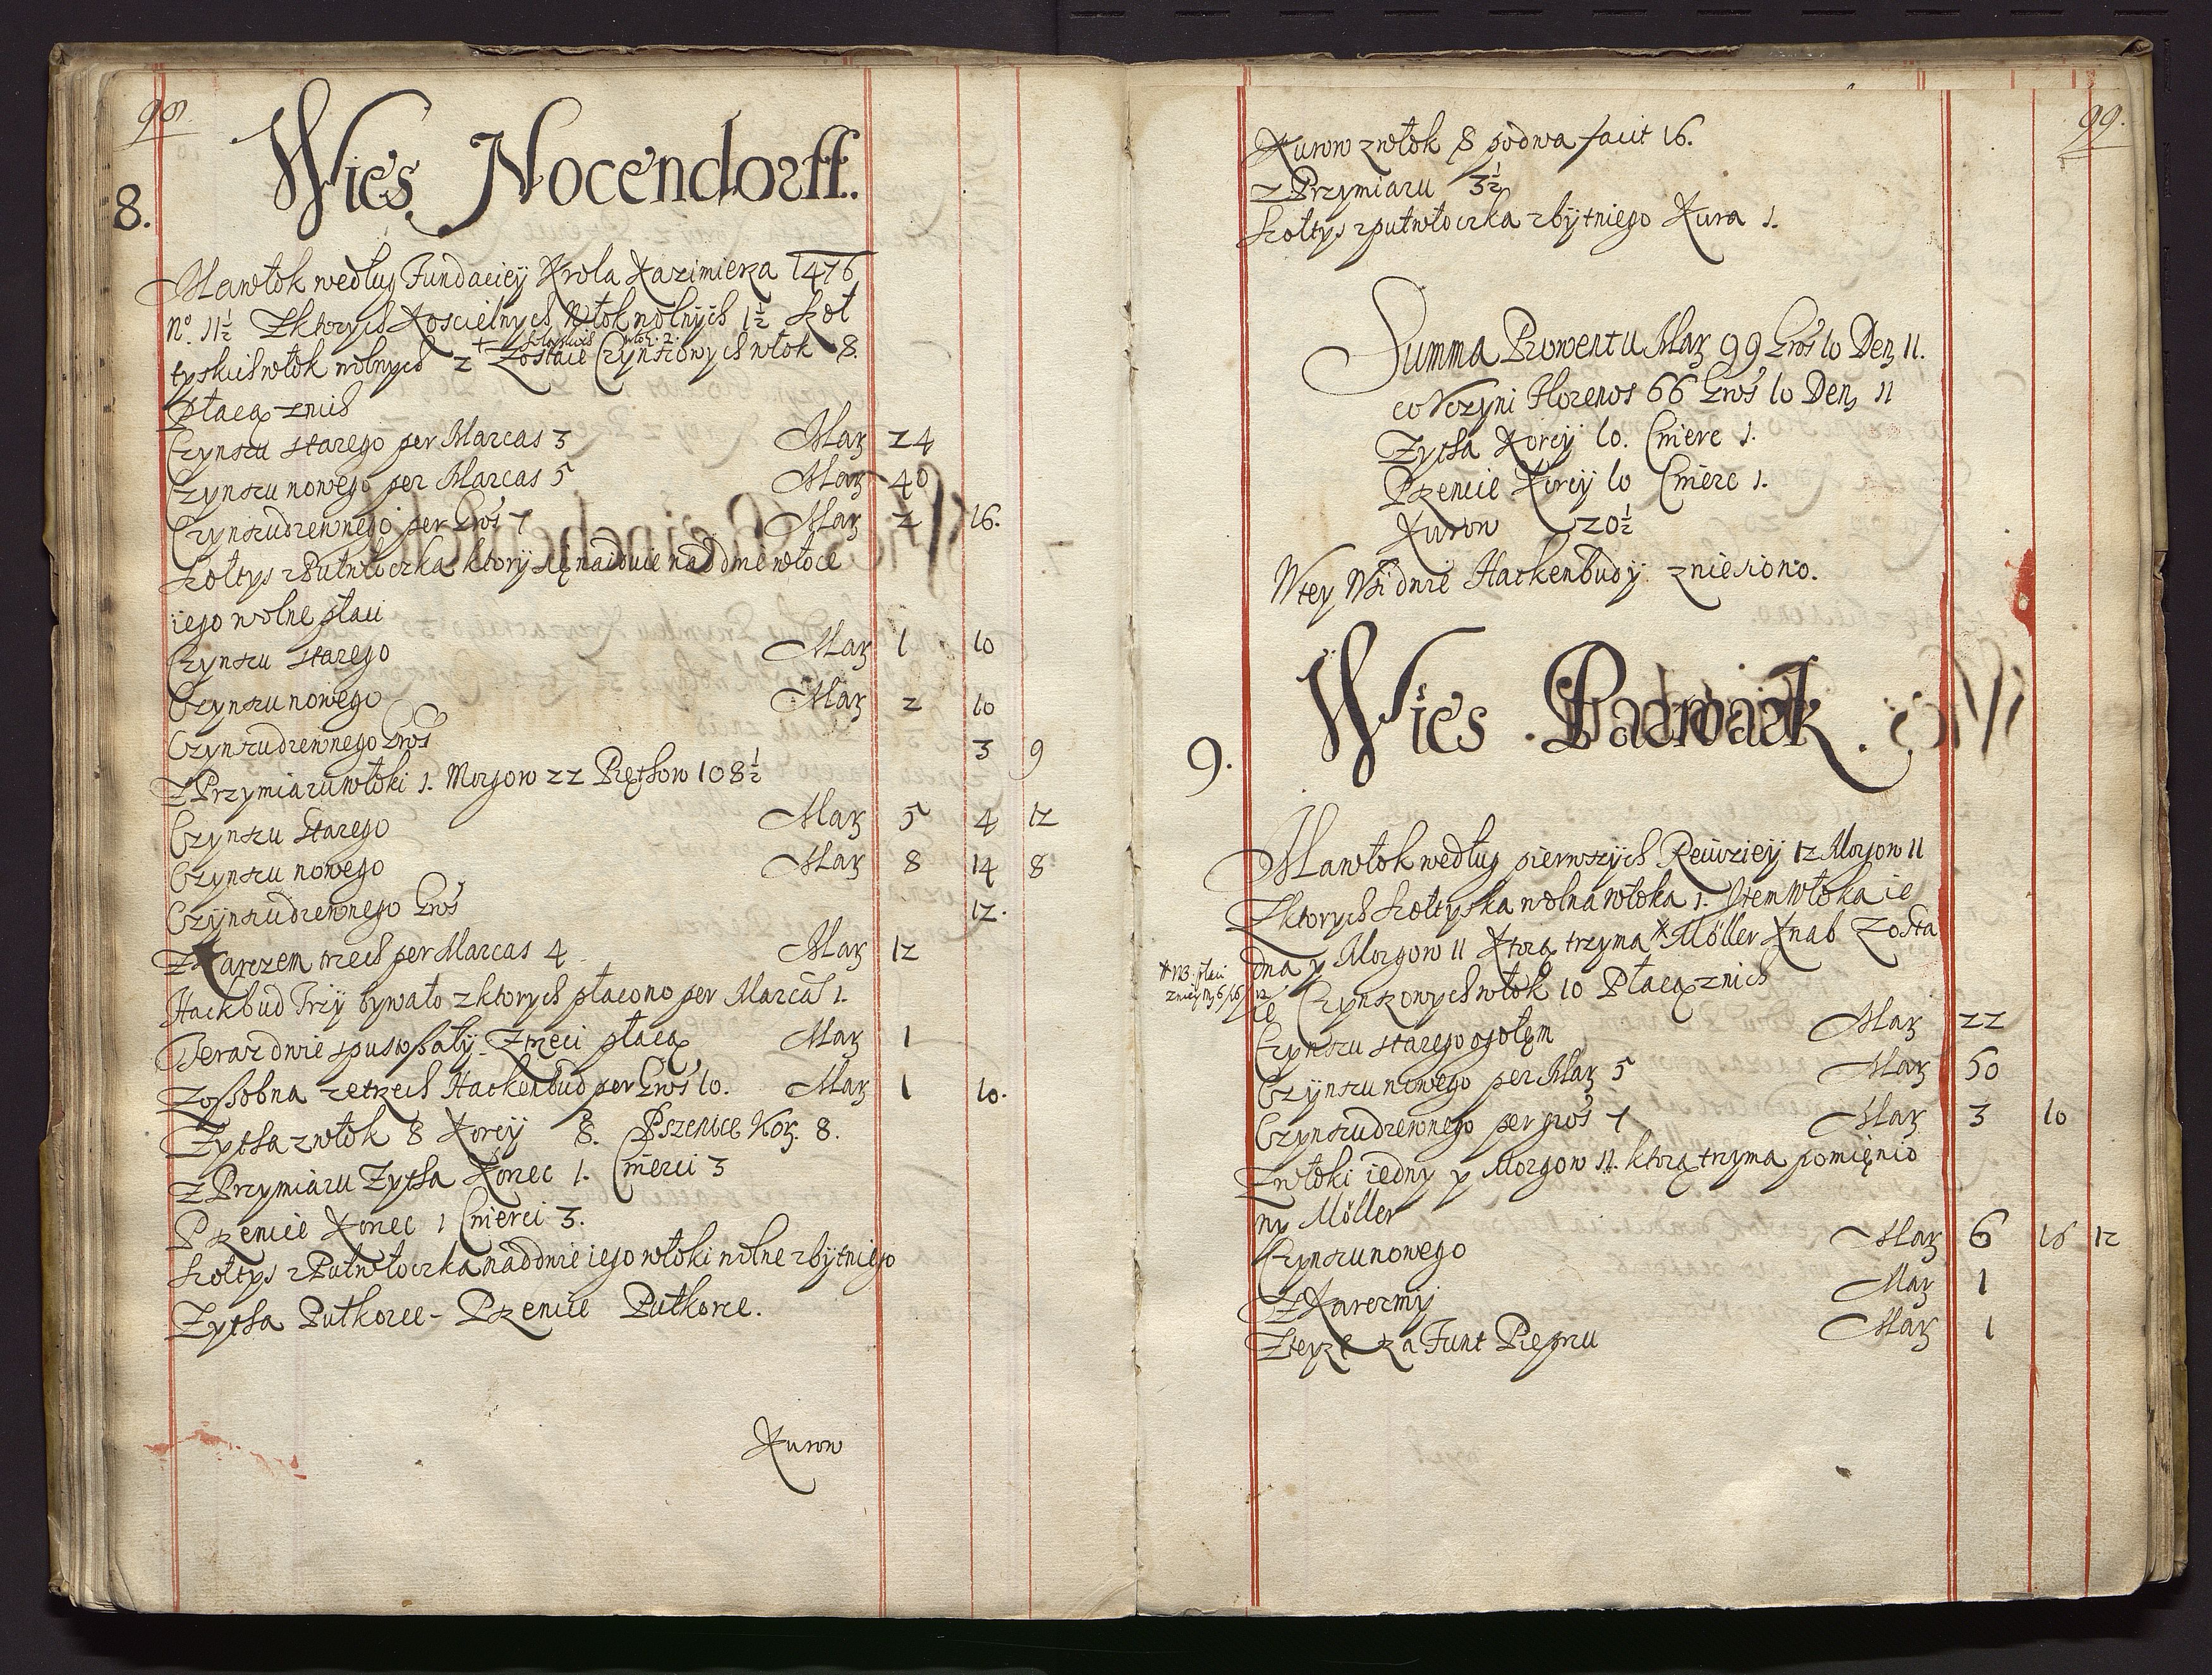 98.
8.
Wies Nocendorff.
Ma włok według Fundaciey Krola Kazimierza 1476
No. 11½ Z ktorych Koscielnych włok wolnych 1½ Szoł
tyskich włok wolnych 2 + Zostaie Czynszowych włok 8.
Płacą z nich
Czynszu starego per Marcas 3 Mar 24
Czynszu nowego per Marcas 5 Mar 40
Czynszu drewnego per Gros 7 Mar 2 16.
Szołtys z Pułwłoczka ktory się naiduie nad dwie włoce
iego wolne płaci
Czynszu starego Mar 1 10
Czynszu nowego Mar 2 10
Czynszu drewnego Gros 3 9
Z Przymiaru włoki 1. Morgow 22 Pręthow 108½
Czynszu starego Mar 5 4 12
Czynszu nowego Mar 8 14 8
Czynszu drewnego Gros 12.
Z Karczem trzech per Marcas 4 Mar 12
Hackbud Trzy bywało z ktorych płacono per Marcas 1.
Teraz dwie spustoszały. Z trzeci płacą Mar 1
Zossobna ze trzech Hackenbud per Gros 10. Mar 1 10.
Zytha z włok 8 Korcy 8. Pszenice Kor. 8.
Z Przymiaru Zytha Korzec 1. Cwierci 3
Pszenice Korzec 1 Cwierci 3.
Szołtys z Pułwłoczka nad dwie iego włoki wolne zbÿtniego
Zytha Pułkorce - Pszenice Pułkorce.
Kurow
99.
Kurow z włok 8 po dwa facit 16.
z Przymiaru 3½
Szołtys z pułwłoczka zbÿtniego Kura 1.
Summa Prowentu Mar 99 Gros 10 Den 11.
co Vczyni Florenos 66 Gros 10 Den 11
Zytha Korcy 10. Cwierc 1.
Pszenice Korcy 10 Cwierc 1.
Kurow 20½
W tey Wsi dwie Hackenbudy zniesiono.
9.
Wies Badwack.
Ma włok według pierwszych Rewiziey 12 Morgow 11
Z ktorych Szołtyska wolna włoka 1. Item Włoka ie
dna y Morgow 11 Ktorą trzyma * Möller Knab Zosta
* NB. płaci
z niey M 6/16/12
ie Czynszowych włok 10 Płacą z nich
Czynszu starego ogołem Mar 22
Czynszu nowego per Mar 5 Mar 50
Czynszu drewnego per gros 7 Mar 3 10
Z włoki iedny y Morgow 11. ktorą trzyma pomienio
ny Möller
Czynszu nowego Mar 6 16 12
Z Karczmy Mar 1
Z teyze za Funt Pieprzu Mar 1